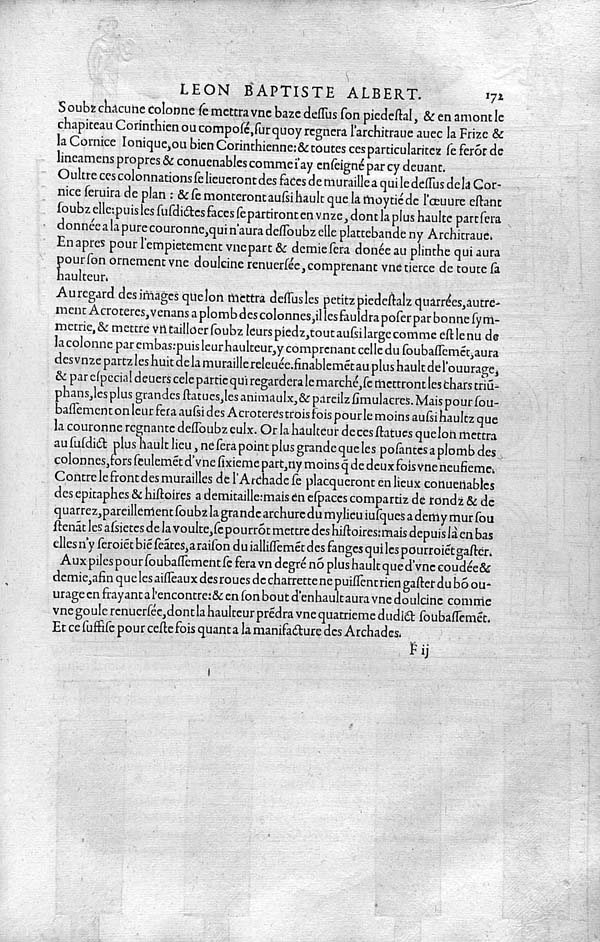 LEON BAPTISTE ALBERT. 172
Soubz chacune colonne ſe mettra vne baze deſſus ſon piedeſtal, & en amont le
chapiteau Corinthien ou compoſé, ſur quoy regnera l'architraue auec la Frize &
la Cornice Ionique, ou bien Corinthienne: & toutes ces particularitez ſe ferõt de
lineamens propres & conuenables comme i'ay enſeigné par cy deuant.
Oultre ces colonnations ſe lieueront des faces de muraille a qui le deſſus de la Cor-
nice ſeruira de plan : & ſe monteront auſsi hault que la moytié de l'œuure eſtant
ſoubz elle: puis les ſuſdictes faces ſe partiront en vnze, dont la plus haulte part ſera
donnée a la pure couronne, qui n'aura deſſoubz elle plattebande ny Architraue.
En apres pour l'empietement vne part & demie ſera donée au plinthe qui aura
pour ſon ornement vne doulcine renuerſée, comprenant vne tierce de toute ſa
haulteur.
Au regard des images que lon mettra deſſus les petitz piedeſtalz quarrées, autre-
ment Acroteres, venans a plomb des colonnes, il les fauldra poſer par bonne ſym-
metrie, & mettre vn tailloer ſoubz leurs piedz, tout auſsi large comme eſt le nu de
la colonne par embas: puis leur haulteur, y comprenant celle du ſoubaſſemẽt, aura
des vnze partz les huit de la muraille releuée. finablemẽt au plus hault de l'ouurage,
& par eſpecial deuers cele partie qui regardera le marché, ſe mettront les chars triũ-
phans, les plus grandes ſtatues, les animaulx, & pareilz ſimulacres. Mais pour ſou-
baſſement on leur fera auſsi des Acroteres trois fois pour le moins auſsi haultz que
la couronne regnante deſſoubz eulx. Or la haulteur de ces ſtatues que lon mettra
au ſuſdict plus hault lieu, ne ſera point plus grande que les poſantes a plomb des
colonnes, fors ſeulemẽt d'vne ſixieme part, ny moins q̃ de deux fois vne neufieme.
Contre le front des murailles de l'Archade ſe placqueront en lieux conuenables
des epitaphes & hiſtoires a demitaille: mais en eſpaces compartiz de rondz & de
quarrez, pareillement ſoubz la grande archure du mylieu iuſques a demy mur ſou
ſtenãt les aſsietes de la voulte, ſe pourrõt mettre des hiſtoires: mais depuis là en bas
elles n'y ſeroiẽt biẽ ſeãtes, a raiſon du iallisſemẽt des fanges qui les pourroiẽt gaſter.
Aux piles pour ſoubaſſement ſe fera vn degré nõ plus hault que d'vne coudée &
demie, afin que les aiſſeaux des roues de charrette ne puiſſent rien gaſter du bõ ou-
urage en frayant a l'encontre: & en ſon bout d'enhault aura vne doulcine comme
vne goule renuerſée, dont la haulteur prẽdra vne quatrieme dudict ſoubaſſemẽt.
Et ce ſuffiſe pour ceſte fois quant a la manifacture des Archades.
F ij